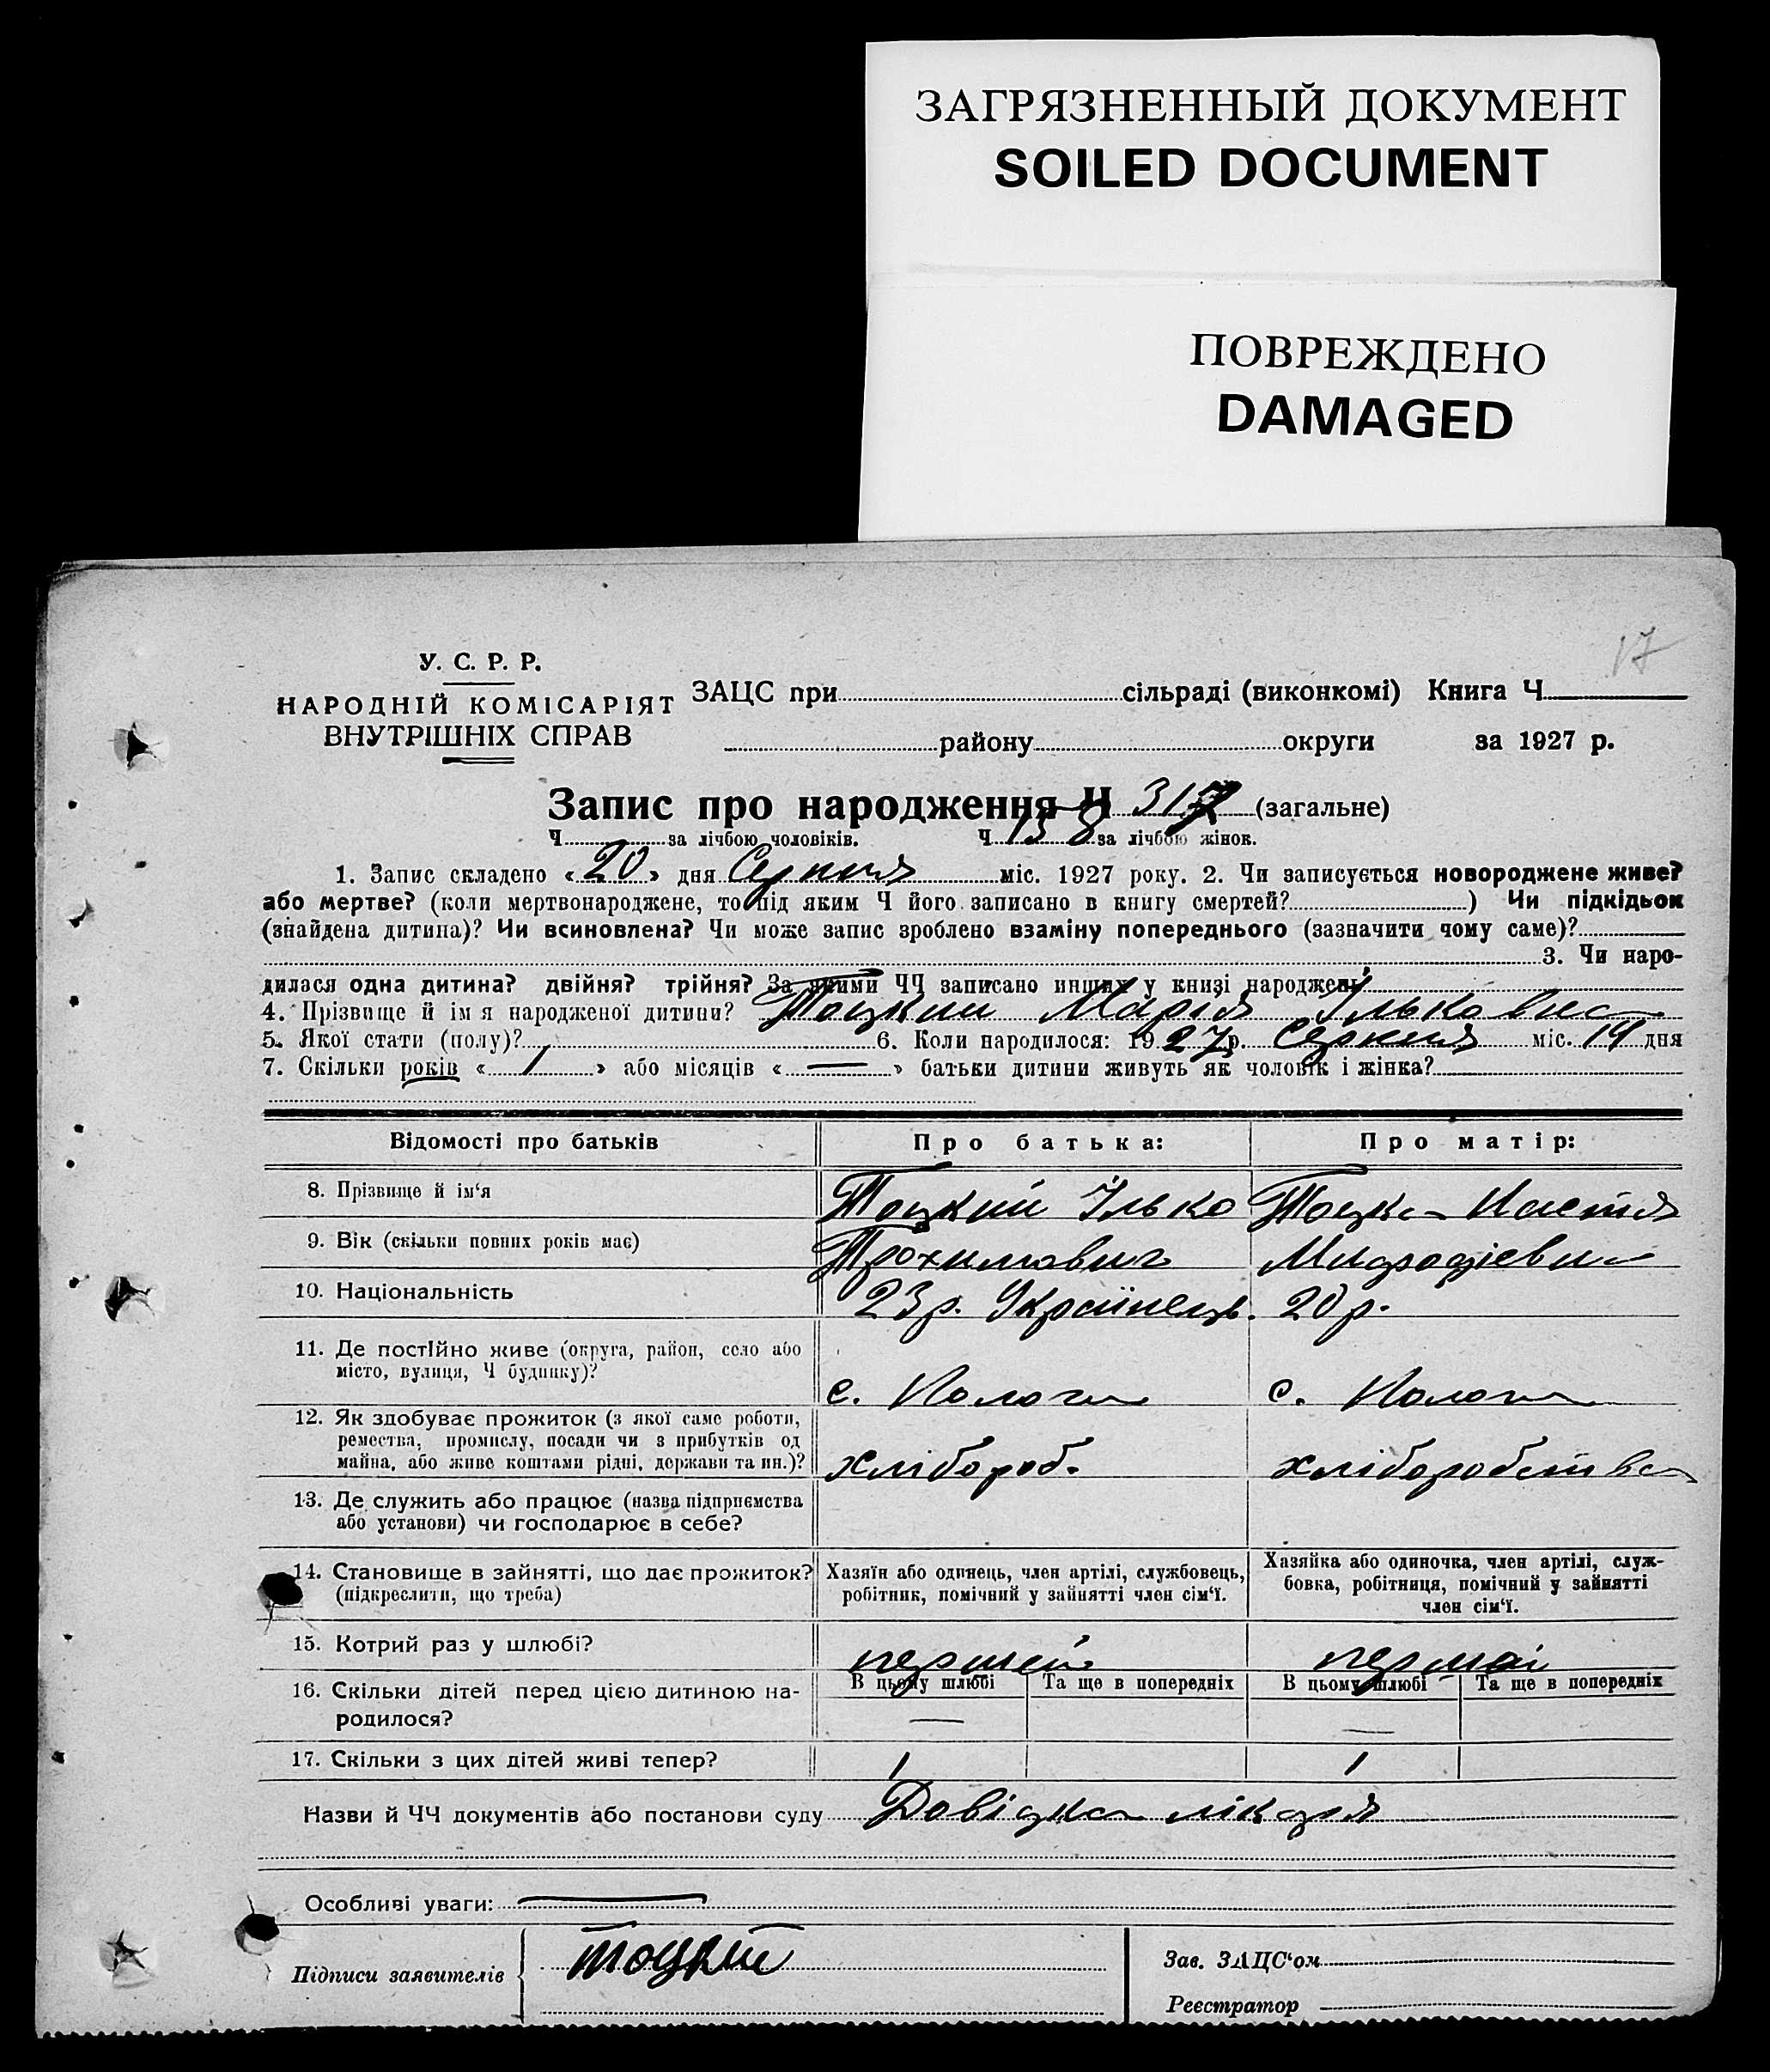 ЗАГРЯЗНЕННЫЙ ДОКУМЕНТ
SOILED DOCUMENT
ПОВРЕЖДЕНО
DAMAGED
17
У. С. Р. Р.
НАРОДНІЙ КОМІСАРІЯТ
ВНУТРІШНІХ СПРАВ
ЗАЦС при сільраді (виконкомі) Книга Ч
району округи за 1927 р.
Запис про народження Ч 317 (загальне)
Ч за лічбою чоловіків. Ч 158 за лічбою жінок.
1. Запис складено « 20 » дня Серпня міс. 1927 року. 2. Чи записується новороджене живе?
або мертве? (коли мертвонароджене, то під яким Ч його записано в книгу смертей? ) Чи підкідьок
(знайдена дитина)? Чи всиновлена? Чи може запис зроблено взаміну попереднього (зазначити чому саме)?
3. Чи наро-
дилася одна дитина? двійня? трійня? За якими ЧЧ записано инших у книзі народжень
4. Прізвище й ім я народженої дитини? Тоцкий Марія Ільковна
5. Якої стати (полу)? 6. Коли народилося: 1927 р. Серпня міс. 14 дня
7. Скільки років « 1 » або місяців « — » батьки дитини живуть як чоловік і жінка?
Відомості про батьків Про батька: Про матір:
8. Прізвище й ім‘я Тоцкий Ілько Тоцка Настя
9. Вік (скільки повних років має) Трохимович
10. Національність 23 р. Українець. 20 р.
11. Де постійно живе (округа, район, село або
місто, вулиця, Ч будинку)?
с. Пологи с. Пологи
12. Як здобуває прожиток (з якої саме роботи,
ремества, промислу, посади чи з прибутків од
майна, або живе коштами рідні, держави та ин.)?
хлібороб. хліборобства
13. Де служить або працює (назва підприємства
або установи) чи господарює в себе?
14. Становище в зайнятті, що дає прожиток?
(підкреслити, що треба)
Хазяїн або одинець, член артілі, службовець,
робітник, помічний у зайнятті член сім‘ї.
Хазяйка або одиночка, член артілі, служ-
бовка, робітниця, помічний у зайнятті
член сім‘ї.
15. Котрий раз у шлюбі? перший перший
16. Скільки дітей перед цією дитиною на-
родилося?
В цьому шлюбі Та ще в попередніх В цьому шлюбі Та ще в попередніх
— —
17. Скільки з цих дітей живі тепер? 1 1
Назви й ЧЧ документів або постанови суду Довідка лікаря
Особливі уваги: —
Підписи заявителів Тоцкий
Зав. ЗАЦС‘ом
Реєстратор